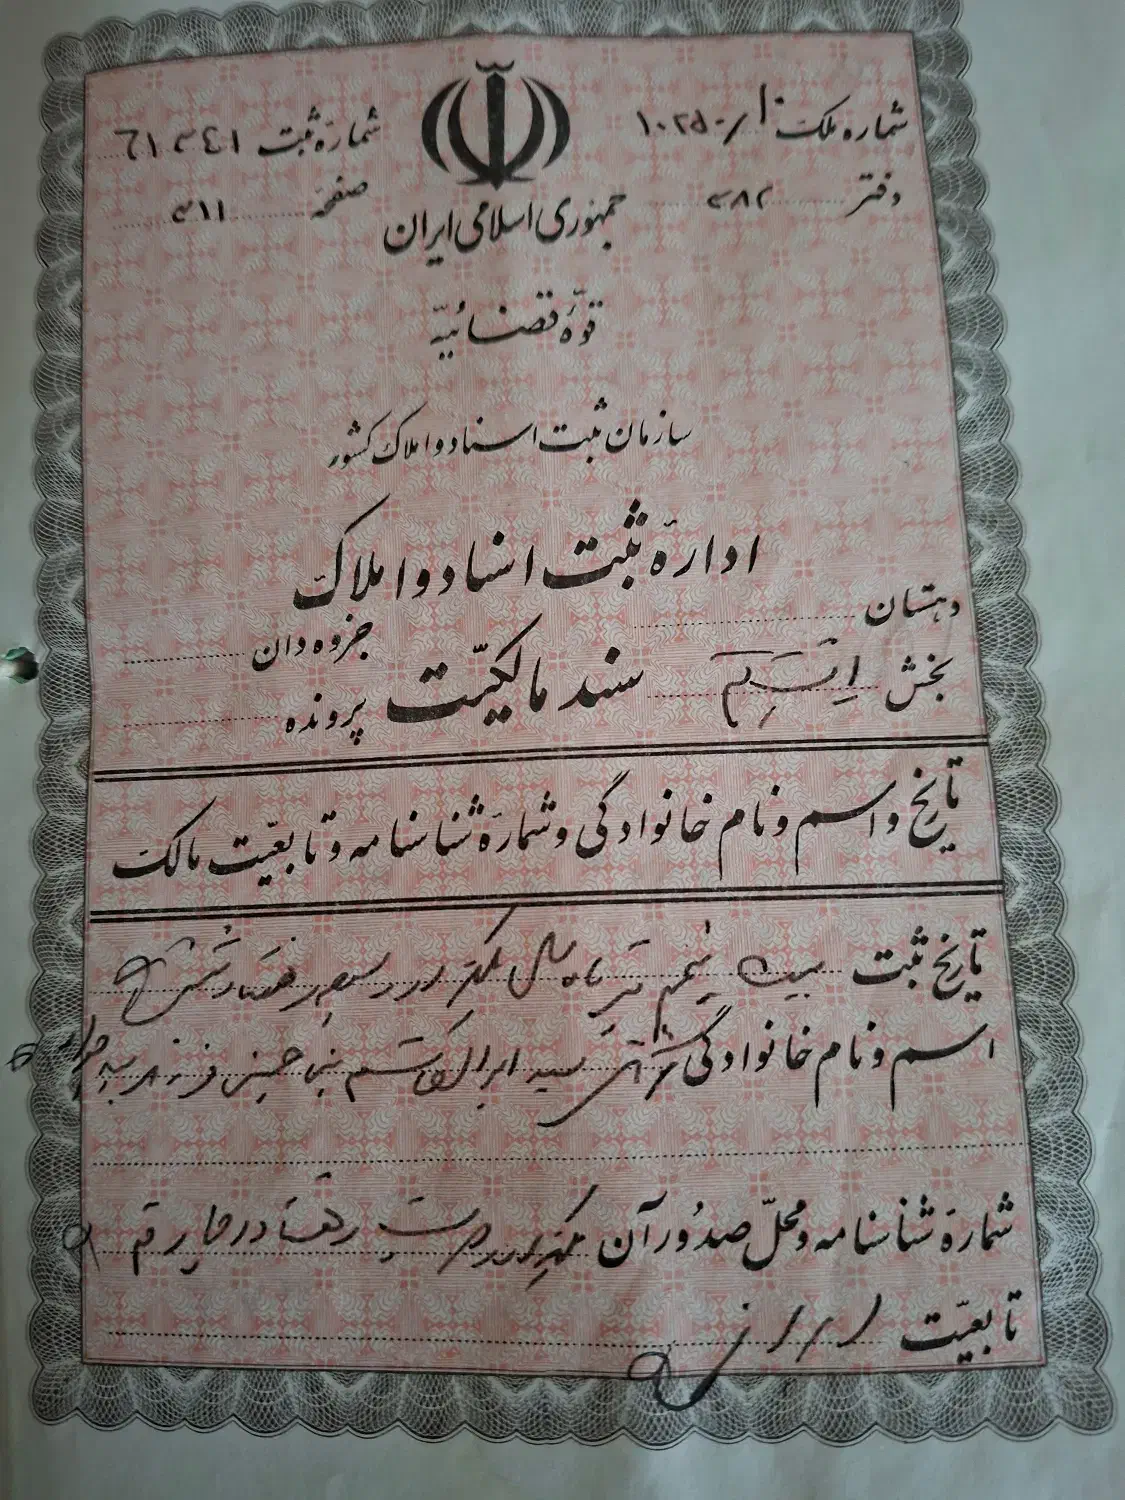 شماره ملک ۱۰۲۵۰/
شماره ثبت ۶۱۳۴۱
دفتر ۳۸۲
صفحه ۳۱۱
جمهوری اسلامی ایران
قوّه قضائیّه
سازمان ثبت اسناد و املاک کشور
اداره ثبت اسناد و املاک
دهستان
جزوه دان
بخش
سند مالکیّت
پرونده
تاریخ و اسم و نام خانوادگی و شماره شناسنامه و تابعیّت مالک
تاریخ ثبت بیست پنجم تیر ماه سال یکهزار و سیصد و هفتاد و شش
اسم و نام خانوادگی آقای سید ابوالقاسم حسینی فرزند سید جواد
شماره شناسنامه و محلّ صدور آن یکهزار و دویست و هفتاد و چهار قم
تابعیّت ایران